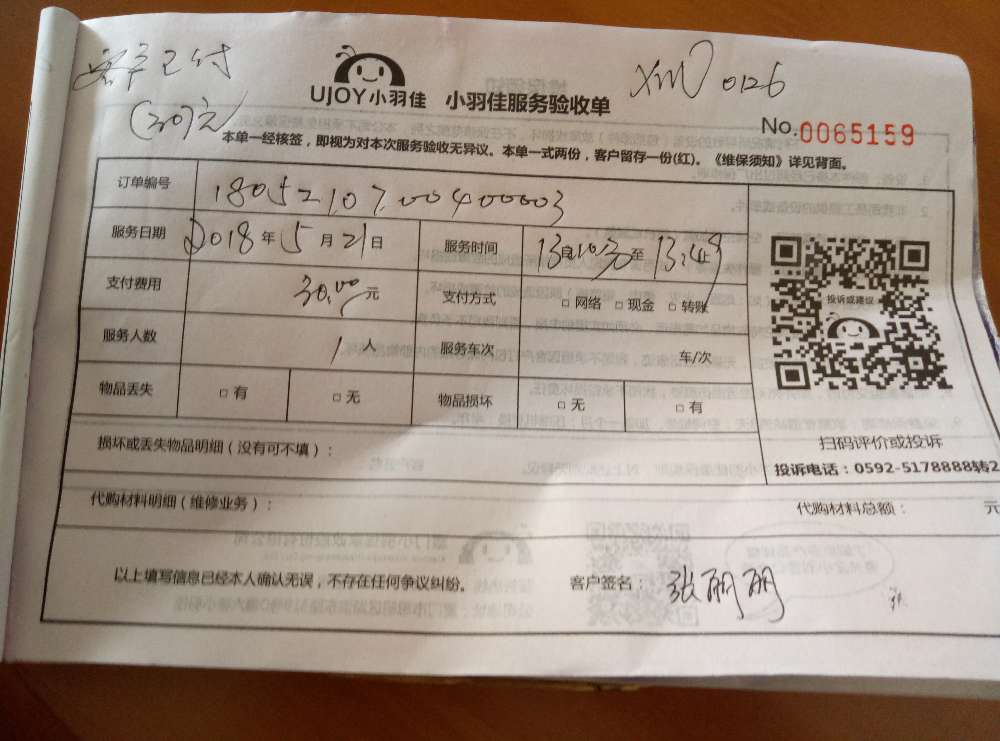 客户已付
(30)元
XM 0126
UJOY小羽佳 小羽佳服务验收单
No.0065159
本单一经核签，即视为对本次服务验收无异议。本单一式两份，客户留存一份(红)。《维保须知》详见背面。
订单编号 18052107.00400003
服务日期 2018年5月21日 服务时间 13 至 13:49 止
支付费用 30.00元 支付方式 □ 网络 □ 现金 □ 转账
投诉或建议
服务人数 1人 服务车次 车/次
物品丢失 □ 有 □ 无 物品损坏 □ 无 □ 有
扫码评价或投诉
损坏或丢失物品明细（没有可不填）：
投诉电话：0592-5178888转2
代购材料明细（维修业务）： 代购材料总额： 元
以上填写信息已经本人确认无误，不存在任何争议纠纷。 客户签名：张丽丽